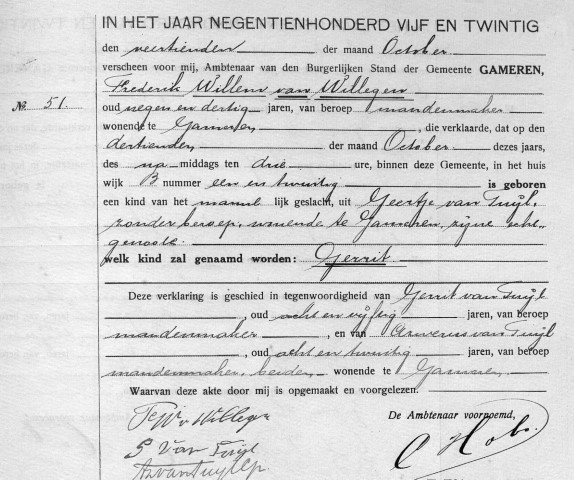 IN HET JAAR NEGENTIENHONDERD VIJF EN TWINTIG
den veertienden der maand October
verscheen voor mij, Ambtenaar van den Burgerlijken Stand der Gemeente GAMEREN,
Frederik Willem van Willegen
No. 51.
oud negen en dertig jaren, van beroep mandenmaker
wonende te Gameren, die verklaarde, dat op den
dertienden der maand October dezes jaars,
des na middags ten drie ure, binnen deze Gemeente, in het huis
wijk B nummer een en twintig is geboren
een kind van het mannelijk geslacht, uit Geertje van Tuijl,
zonder beroep, wonende te Gameren, zijne echt-
genoote.
welk kind zal genaamd worden: Gerrit.
Deze verklaring is geschied in tegenwoordigheid van Gerrit van Tuijl
, oud acht en vijftig jaren, van beroep
mandenmaker, en van van Tuijl
, oud acht en twintig jaren, van beroep
mandenmaker, beiden wonende te Gameren.
Waarvan deze akte door mij is opgemaakt en voorgelezen.
De Ambtenaar voornoemd,
F W v Willegen
G Van Tuijl
van Tuijl